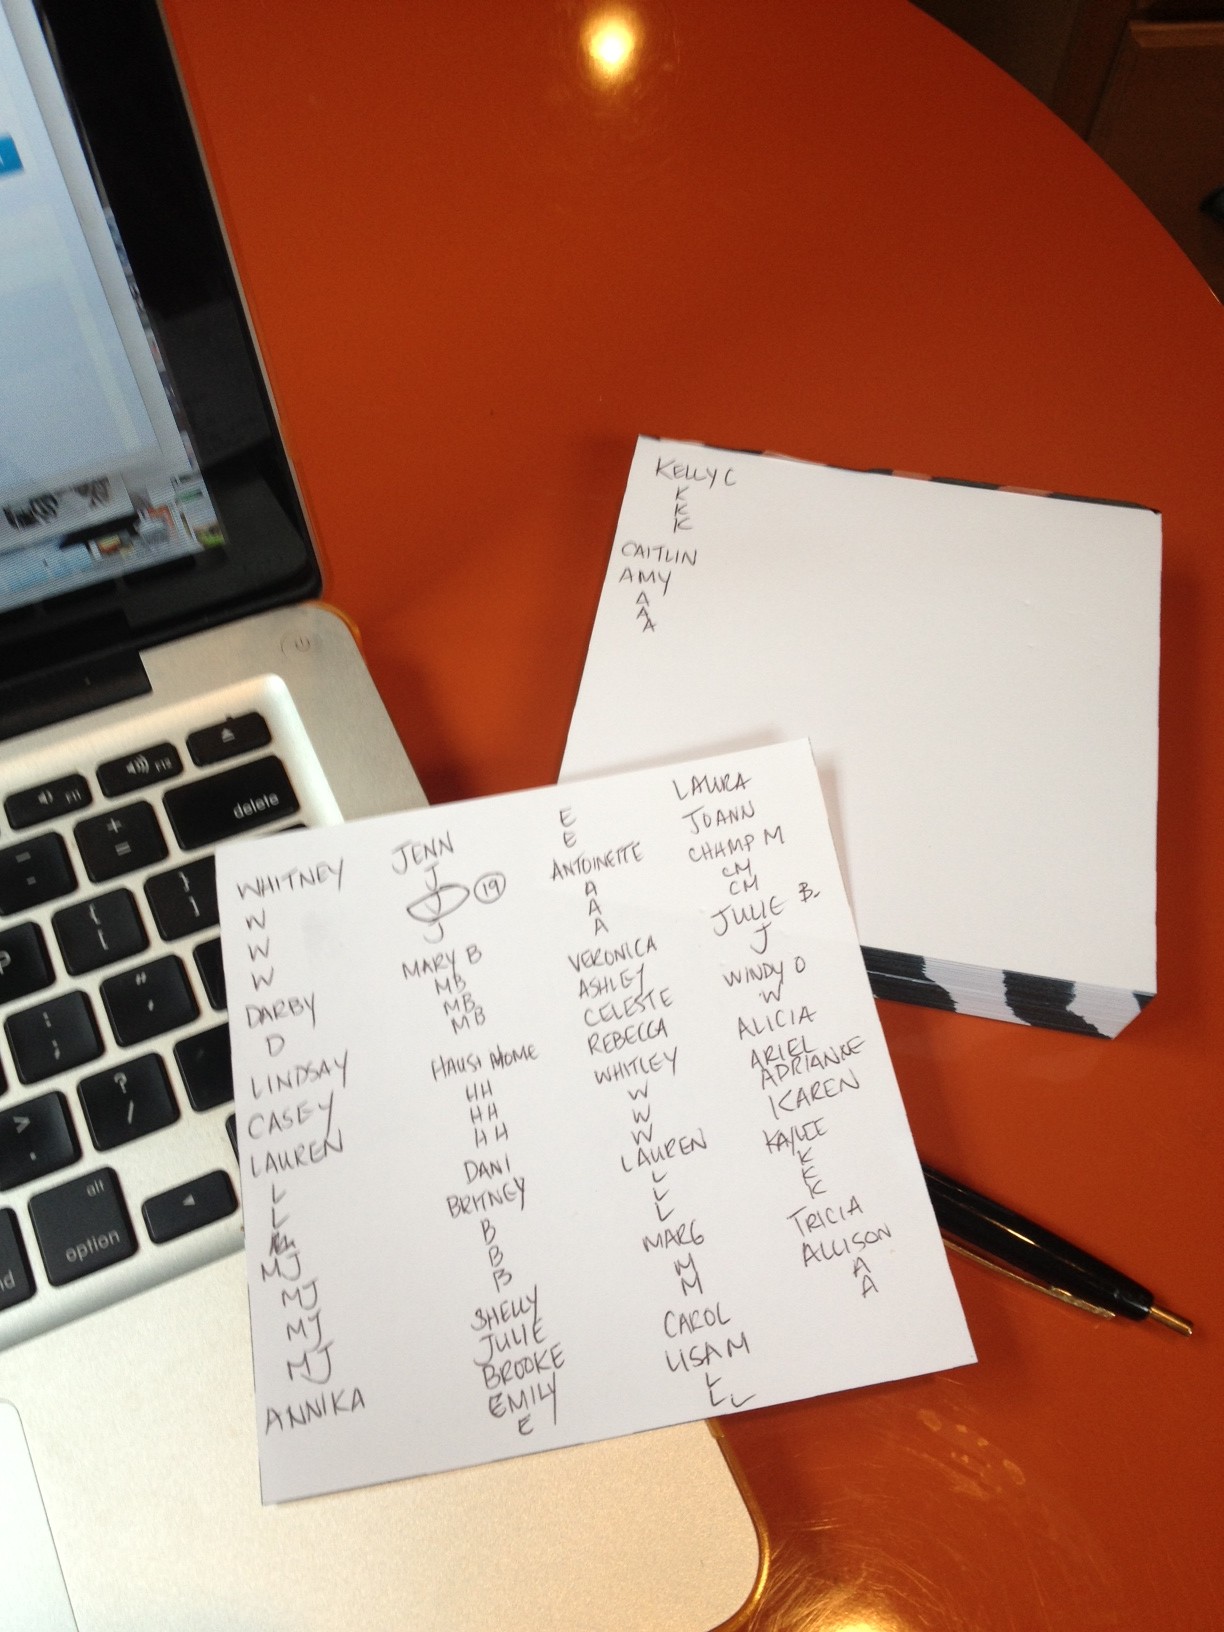 KELLY C
K
K
K
CAITLIN
AMY
A
A
A
WHITNEY
W
W
W
DARBY
D
LINDSAY
CASEY
LAUREN
L
L
MJ
MJ
MJ
MJ
ANNIKA
JENN
J
J 19
J
MARY B
MB
MB
MB
HAUSI MOME
HH
HH
HH
DANI
BRITNEY
B
B
B
SHELLY
JULIE
BROOKE
EMILY
E
E
E
ANTOINETTE
A
A
A
VERONICA
ASHLEY
CELESTE
REBECCA
WHITLEY
W
W
W
LAUREN
L
L
L
MARG
M
M
CAROL
LISA M
L
L L
LAURA
JOANN
CHAMP M
CM
CM
JULIE B.
J
WINDY O
W
ALICIA
ARIEL
ADRIANNE
KAREN
KAYLIE
K
K
K
TRICIA
ALLISON
A
A
delete
alt
option
F11
F12
+
=
}
]
{
[
"
'
?
/
:
;
>
.